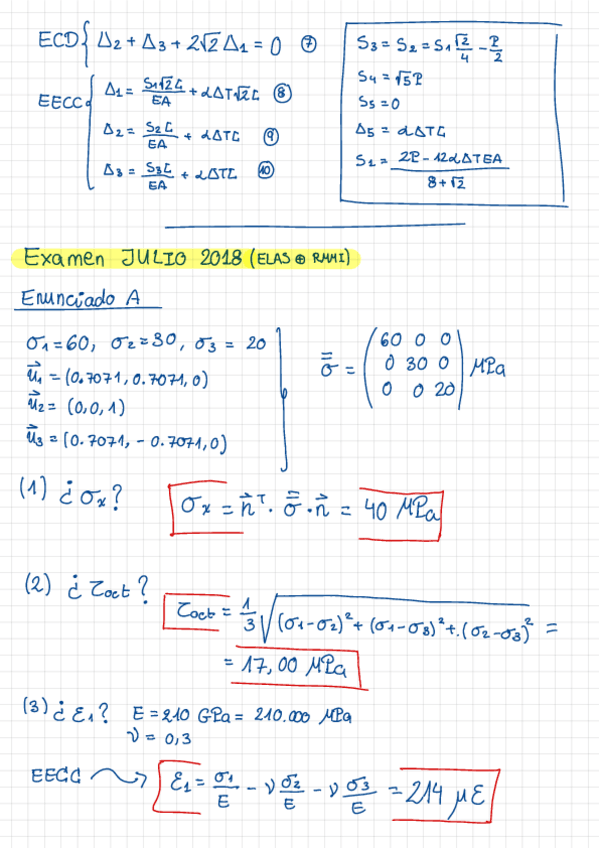 ECD { Δ2 + Δ3 + 2√2 Δ1 = 0 ⑦
EECC { Δ1 = S1√2L/EA + αΔT√2L ⑧
Δ2 = S2L/EA + αΔTL ⑨
Δ3 = S3L/EA + αΔTL ⑩
S3 = S2 = S1 √2/4 - P/2
S4 = √5P
S5 = 0
Δ5 = αΔTL
S1 = 2P - 12αΔTEA / 8 + √2
Examen JULIO 2018 (ELAS ⊕ RMMI)
Enunciado A
σ1 = 60, σ2 = 30, σ3 = 20
u⃗1 = (0.7071, 0.7071, 0)
u⃗2 = (0,0,1)
u⃗3 = (0.7071, -0.7071, 0)
σ̿ = (60 0 0
0 30 0
0 0 20) MPa
(1) ¿σx? σx = n⃗ᵀ · σ̿ · n⃗ = 40 MPa
(2) ¿τoct? τoct = 1/3 √(σ1-σ2)² + (σ1-σ3)² +.(σ2-σ3)² =
= 17,00 MPa
(3) ¿ε1? E = 210 GPa = 210.000 MPa
ν = 0,3
EECC → ε1 = σ1/E - ν σ2/E - ν σ3/E = 214 με